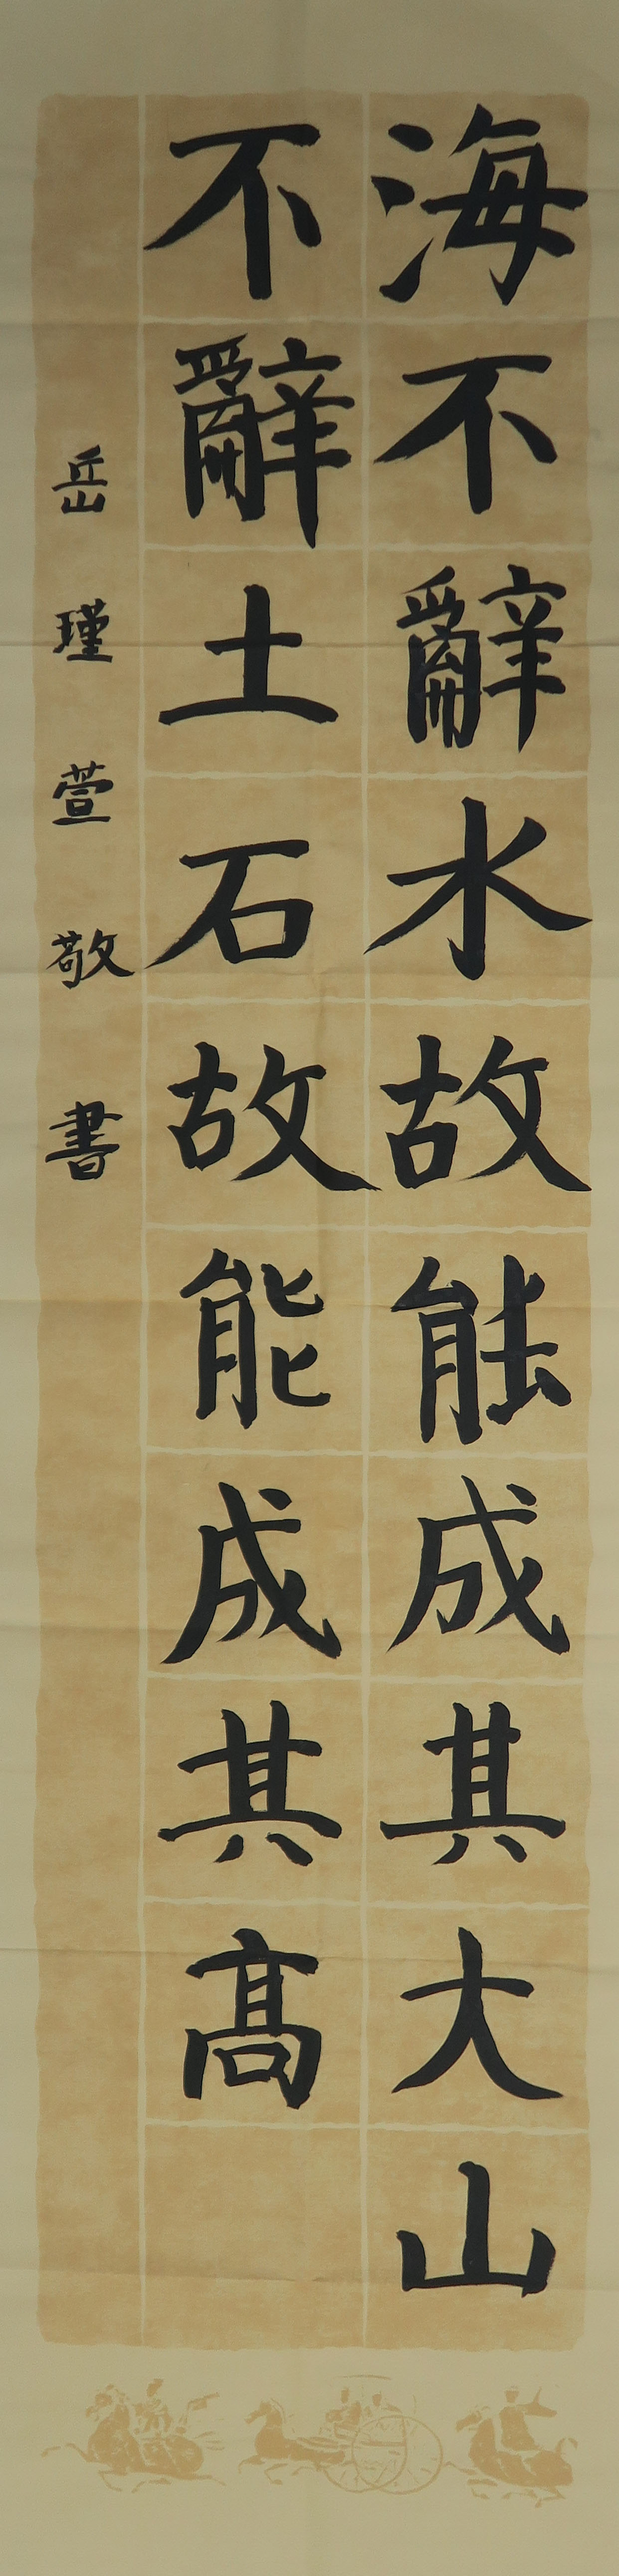 海不辭水故能成其大山
不辭土石故能成其高
岳瑾萱敬書